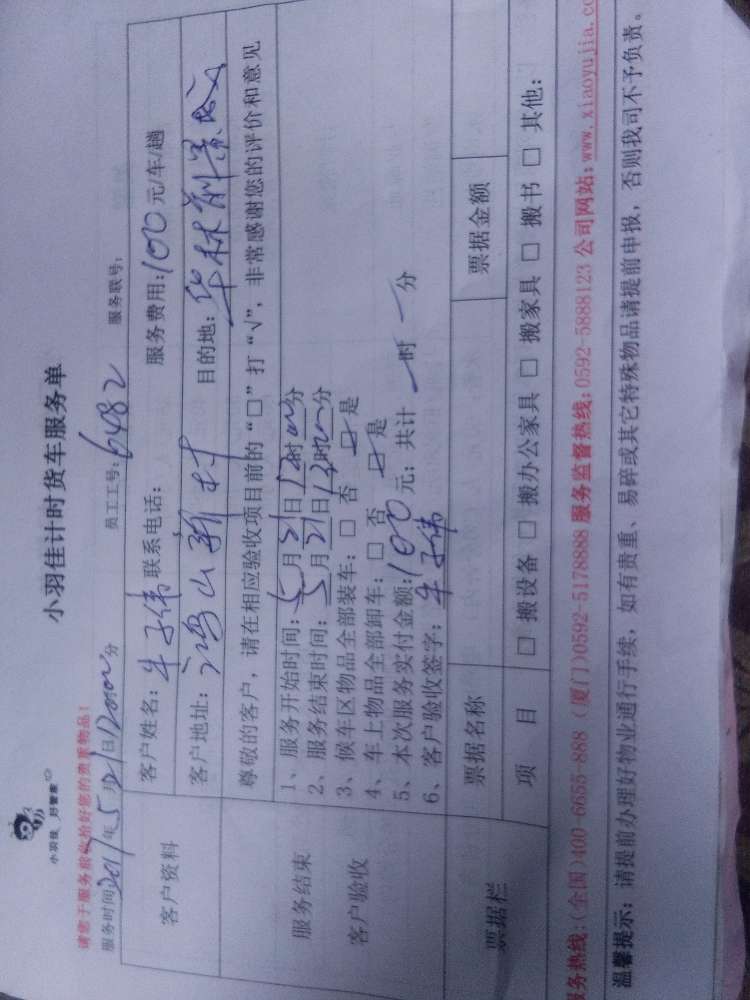 小羽佳 好管家
小羽佳计时货车服务单
请您于服务前收拾好您的贵重物品!
服务时间2017年5月21日12时00分 员工工号:6482 服务联号:
客户资料
客户姓名:牛子伟 联系电话: 服务费用:100元/车/趟
客户地址: 山新村 目的地:华林
尊敬的客户,请在相应验收项目前的“□”打“√”,非常感谢您的评价和意见
服务结束
客户验收
1、服务开始时间:5月21日12时00分
2、服务结束时间:5月21日13时00分
3、候车区物品全部装车:□ 否 ☑ 是
4、车上物品全部卸车:□ 否 ☑ 是
5、本次服务实付金额:100元;共计一时一分
6、客户验收签字:牛子伟
票据栏
票据名称 票据金额
项 目 □ 搬设备 □ 搬办公家具 □ 搬家具 □ 搬书 □ 其他:
务热线:(全国)400-6655-888 (厦门)0592-5178888 服务监督热线:0592-5888123 公司网站:www.xiaoyujia.c
温馨提示:请提前办理好物业通行手续,如有贵重、易碎或其它特殊物品请提前申报,否则我司不予负责。